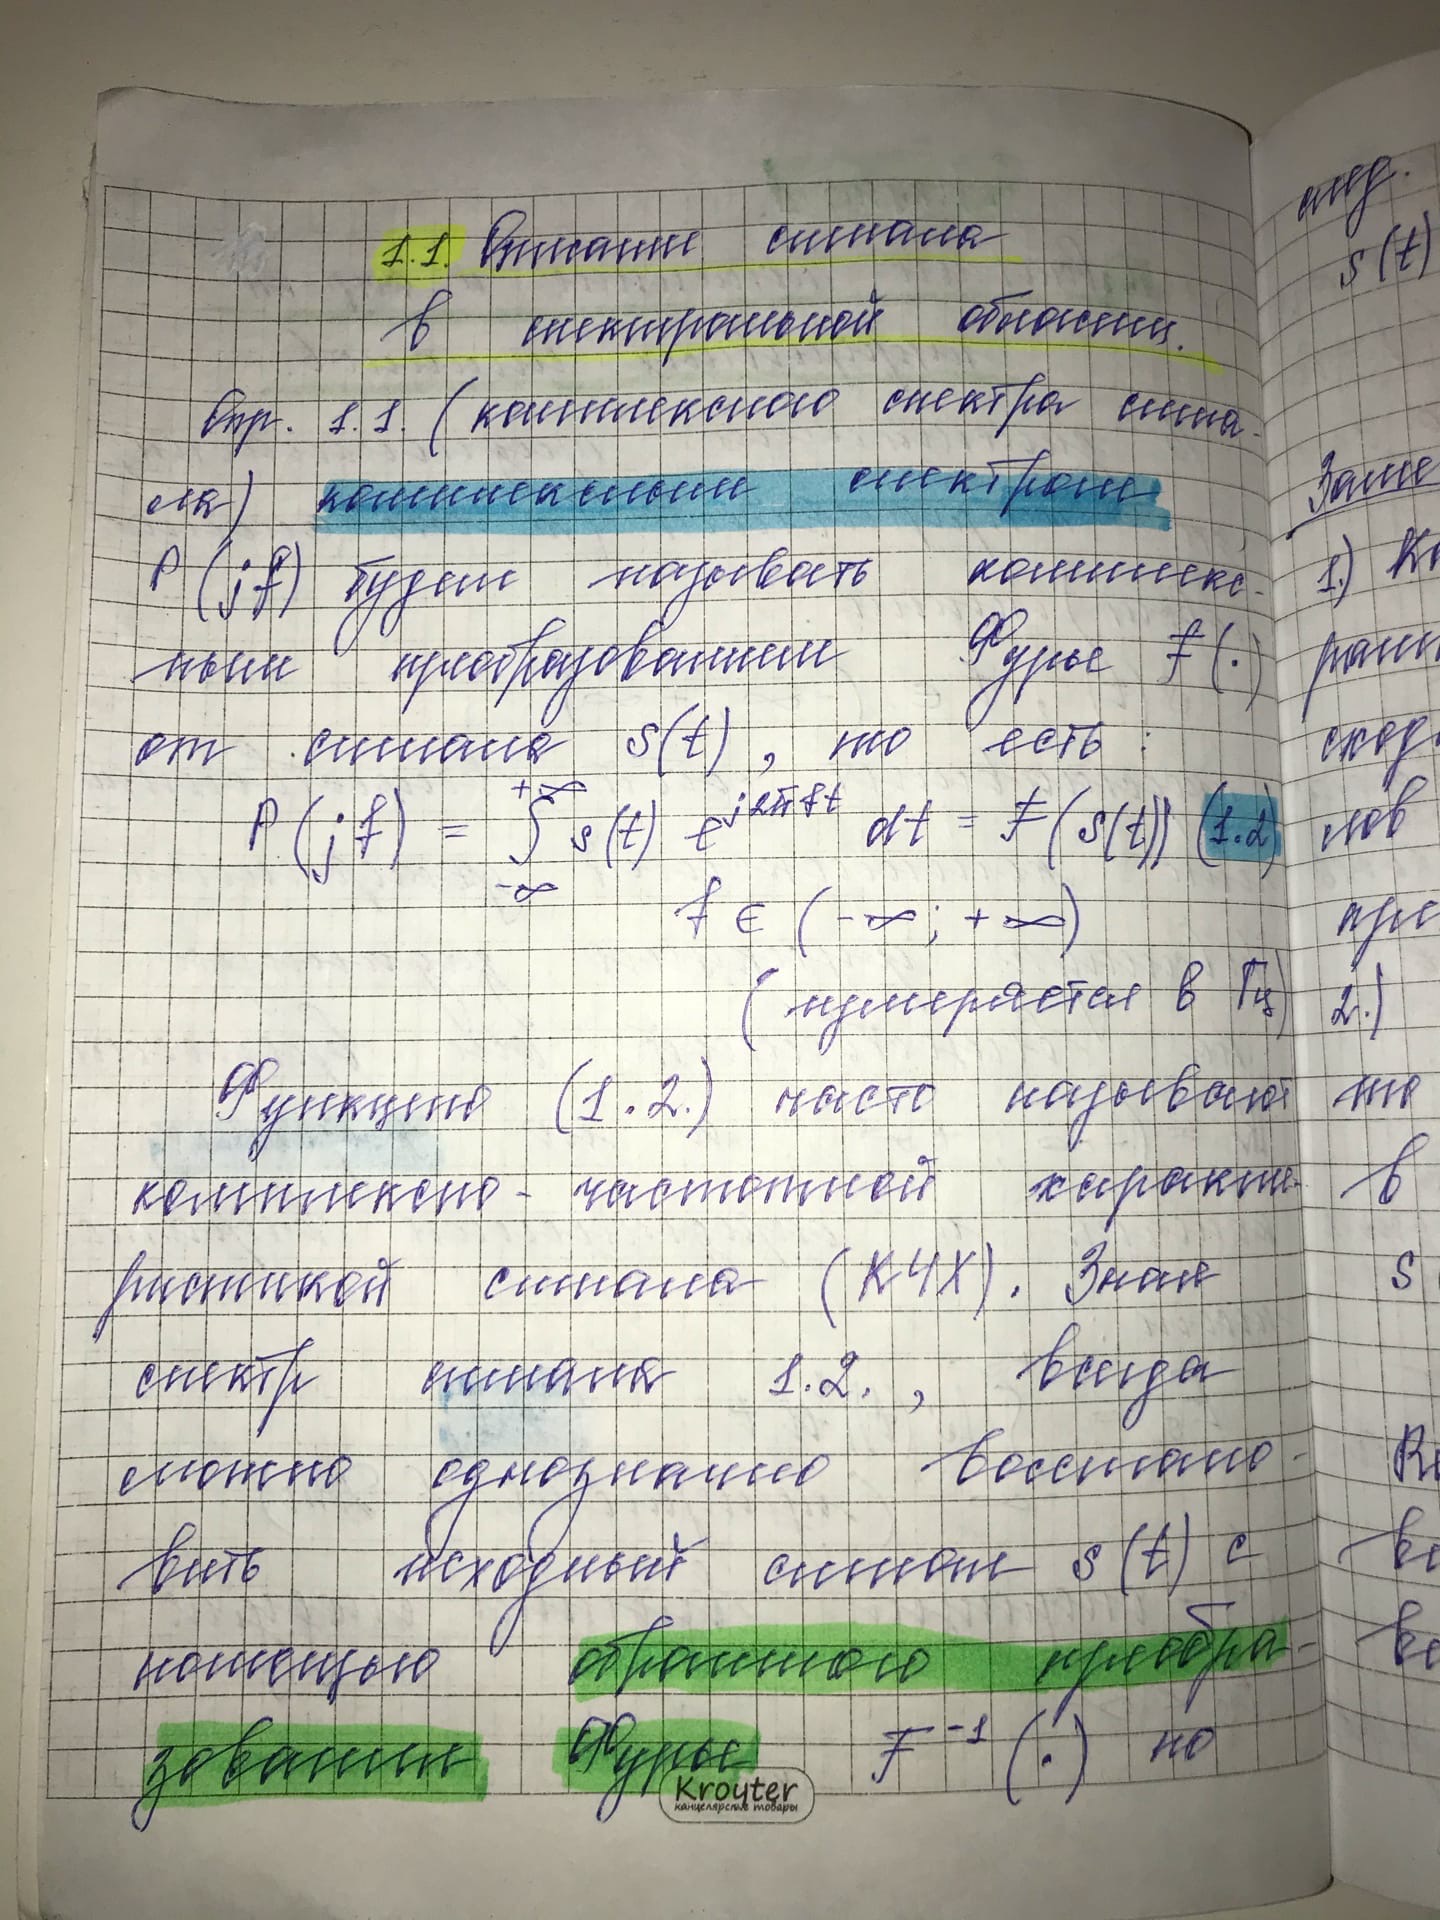 1.1. Описание сигнала
в спектральной области.
Опр. 1.1. (комплексного спектра сигна-
ла) комплексным спектром
P(jf) будем называть комплекс-
ным преобразованием Фурье F(·)
от сигнала s(t), то есть:
P(jf) = ∫₋∞⁺∞ s(t) e^{j2πft} dt = F(s(t)) (1.2)
f ∈ (-∞; +∞)
(измеряется в Гц)
Функцию (1.2.) часто называют
комплексно-частотной характе-
ристикой сигнала (КЧХ). Зная
спектр сигнала 1.2., всегда
можно однозначно восстано-
вить исходный сигнал s(t) с
помощью обратного преобра-
зования Фурье F⁻¹(·) по
Kroyter
канцелярские товары
след.
s(t)
Заме
1.) Ко
ранн
сход
лов
пре
2.)
то
в
s
Re
ве
ве